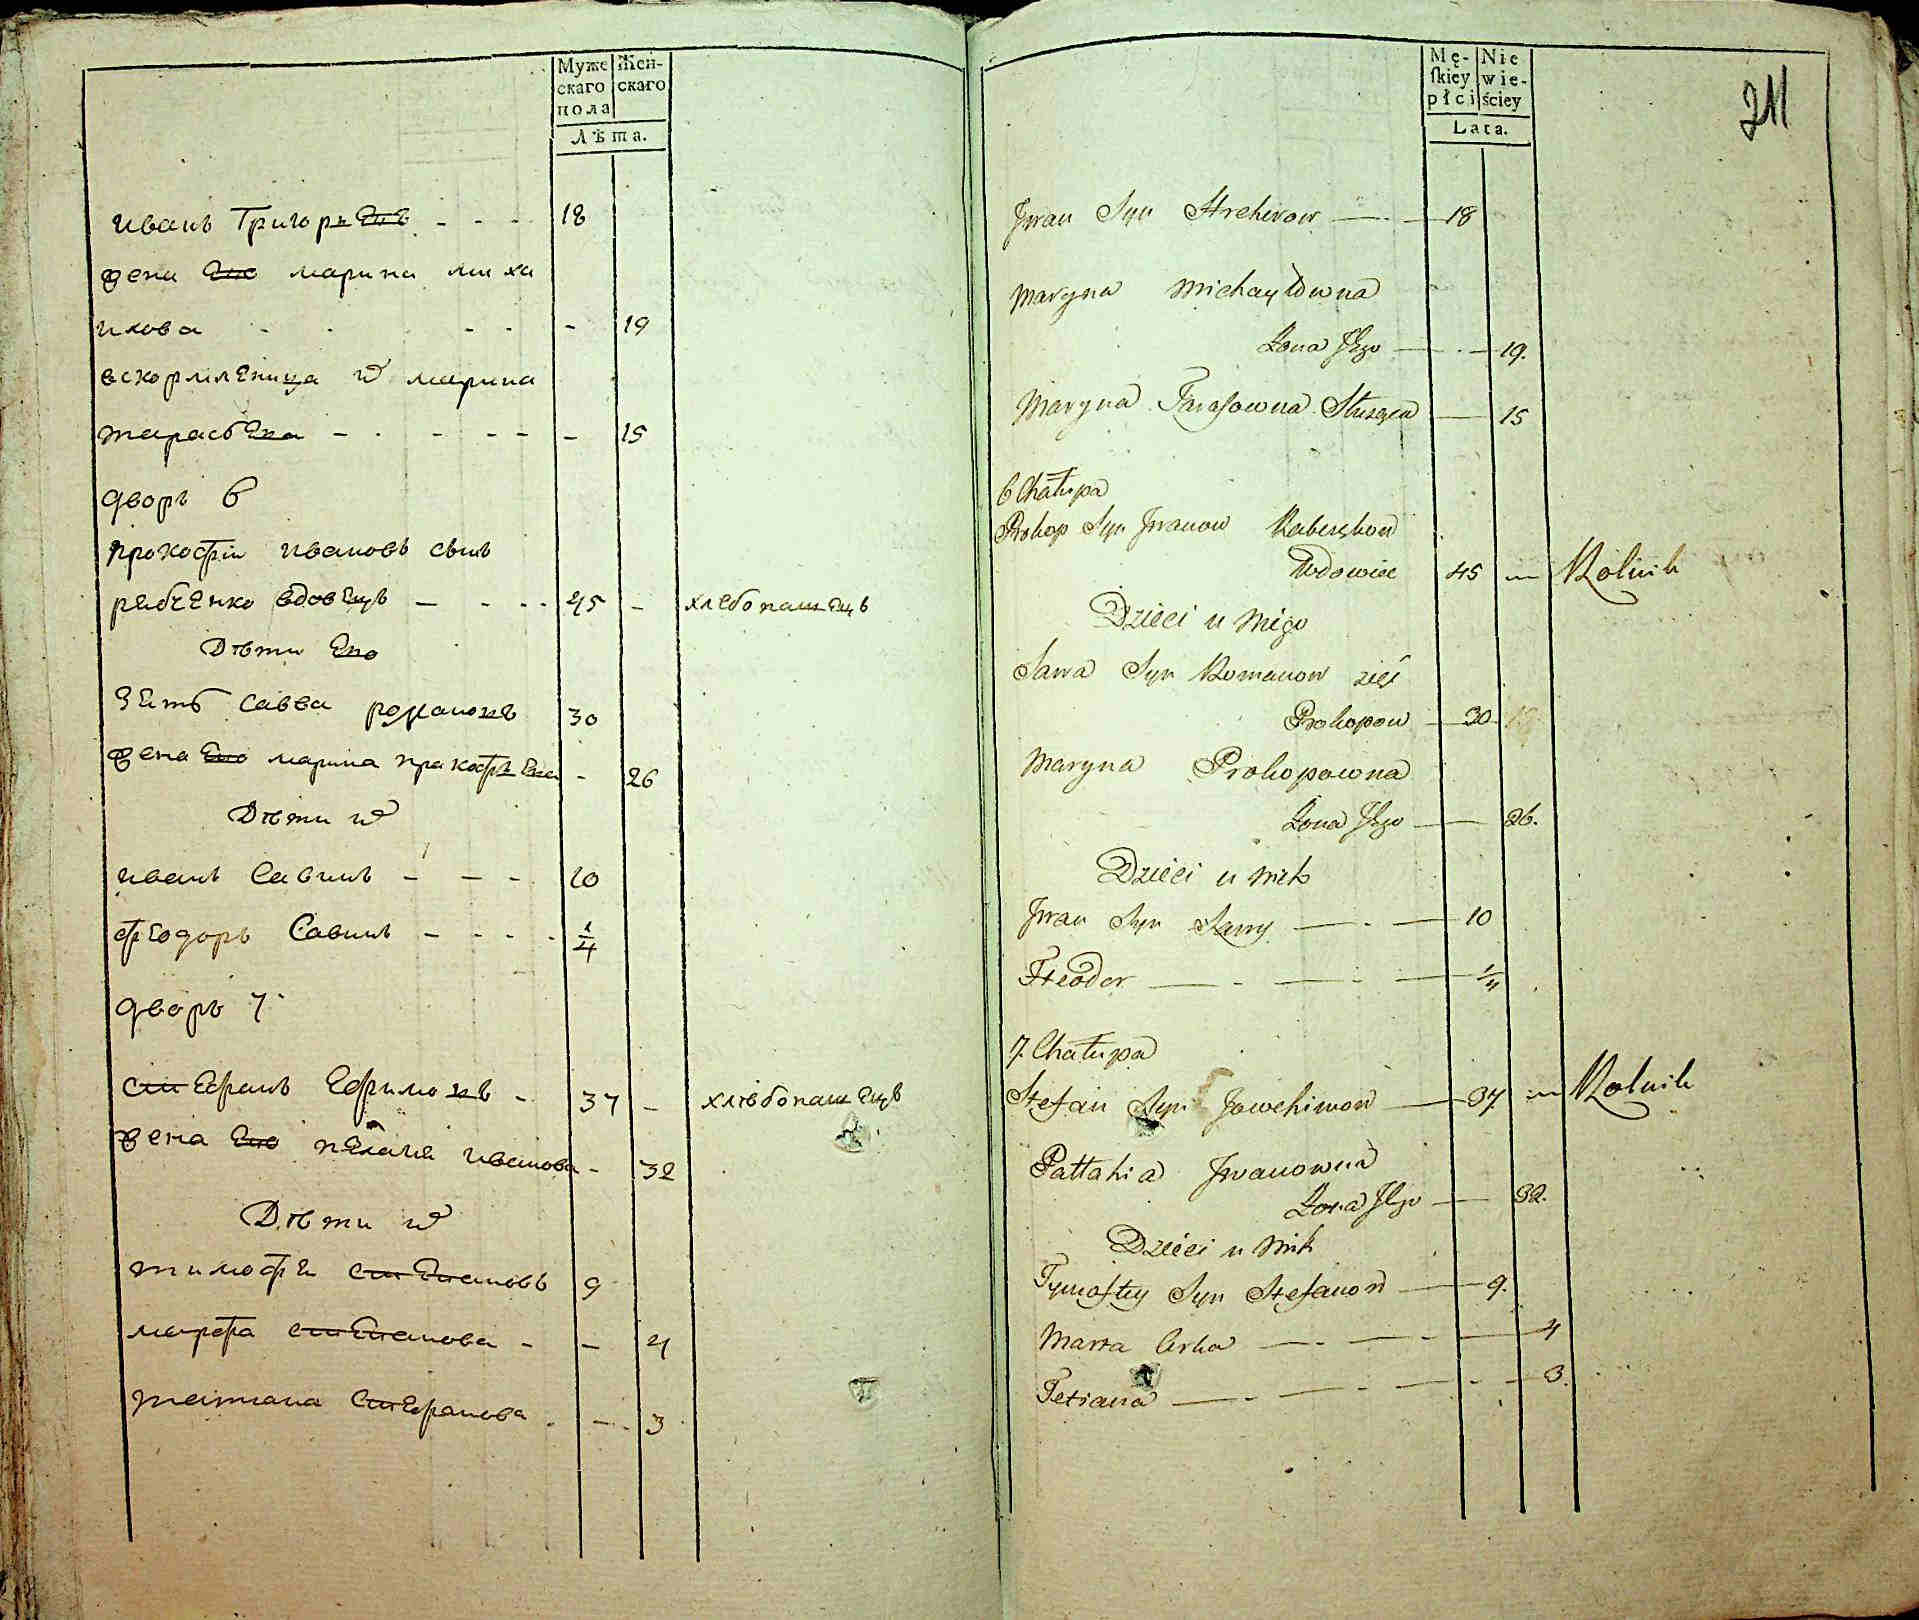 Муже
скаго
пола
Жен-
скаго
Лѣта.
иванъ Григорьевъ - - - 18
жена Его марина миха
илова - - - - - 19
вскормленица их марина
тарасовна - - - - - - 15
дворъ 6
прокофіи ивановъ сынъ
рябченко вдовецъ - - - - 45 - хлебопашецъ
Дѣти Его
Зять Савва романовъ 30
жена Его марина пракофьева - 26
Дѣти их
иванъ Савинъ - - - 10
феодоръ Савинъ - - - - 1/4
дворъ 7
стефанъ Ефимовъ - 37 - хлѣбопашецъ
жена Его пелагия иванова - 32
Дѣти их
тимофеи степановъ 9
марфа степанова - - 4
татиана Стефанова - - 3
Mę-
ſkiey
płci
Nie
wie-
ściey
Lata.
211
Jwan Syn Hrehorow — 18
Maryna Michayłowna
Żona Jego — 19.
Maryna Tarasowna Służąca — 15
6 Chałupa
Prokop Syn Jwanow Rabczękow
Wdowiec 45 — Rolnik
Dzieci u Niego
Sawa Syn Romanow zięć
Prokopow — 30
Maryna Prokopowna
Żona Jego — 26.
Dzieci u Nich
Jwan Syn Sawy — 10
Fteodor — 1/4
7. Chałupa
Stefan Syn Jowchimow — 37 — Rolnik
Pałłahia Jwanowna
Żona Jego — 32.
Dzieci u Nich
Tymoſtey Syn Stefanow — 9.
Marta Corka — 4
Tetiana — 3.